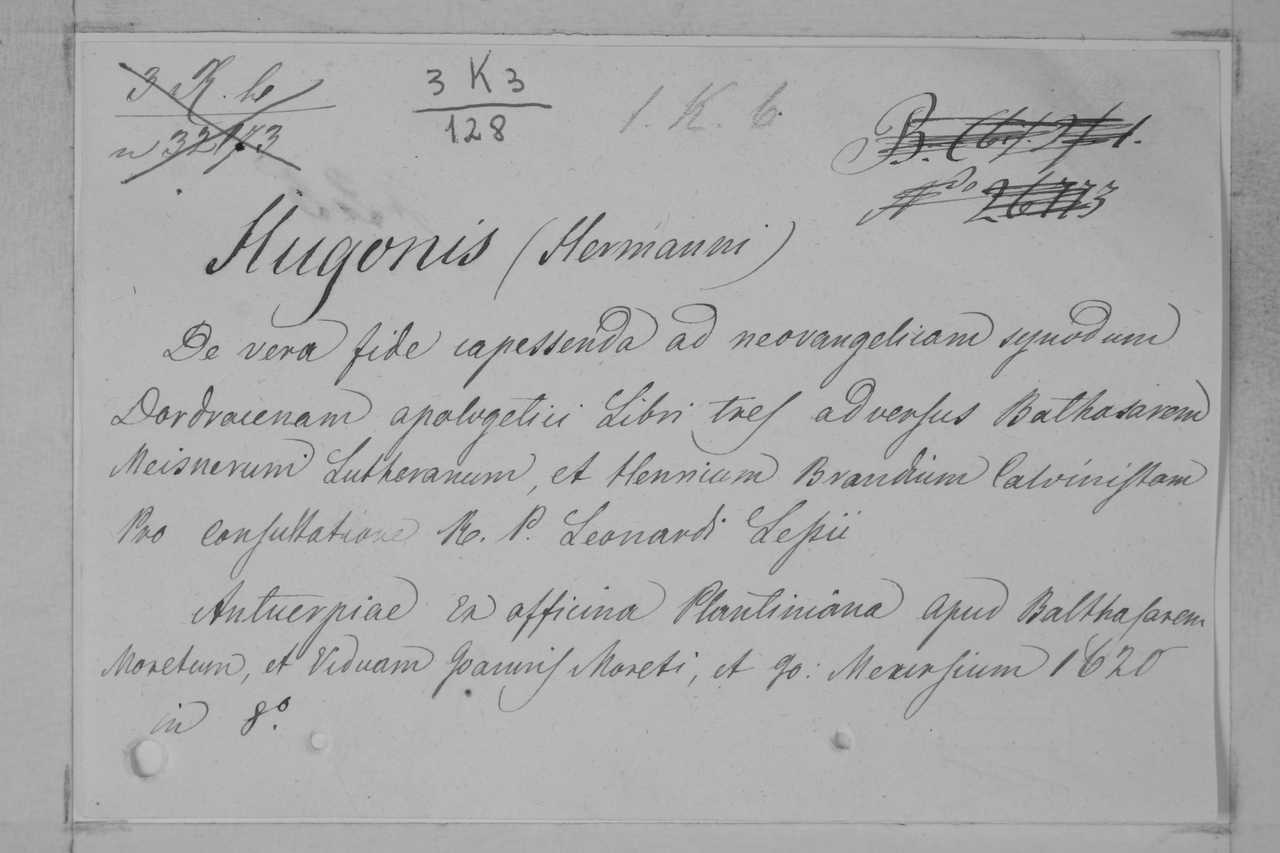 3 K. 6
n 32173
3 K 3
128
1. K. 6.
B.
No 26773
Hugonis (Hermanni)
De vera fide capessenda ad neovangelicam synodum
Dordracenam apologetici Libri tres adversus Balthasarem
Meisnerum Lutheranum, et Henricum Brandium Calvinistam
Pro Consultatione R. P. Leonardi Lessii
Antuerpiae Ex officina Plantiniana apud Balthasarem
Moretum, et Viduam Joannis Moreti, et Jo: Meursium 1620
in 8.º